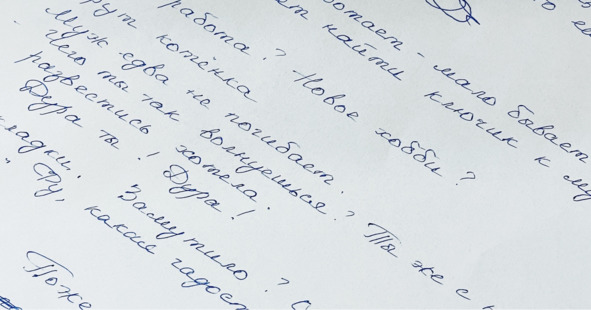 ботает - мало бывает
найти ключик к му
работа? Новое хобби?
котёнка
Муж едва не погибает.
чего ты так волнуешься? Ты же с
развестись хотела.
Дура ты! Дура!!
Замутило?
"Фу, какая гадост
Поже